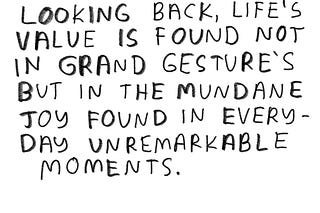 LOOKING BACK, LIFE'S
VALUE IS FOUND NOT
IN GRAND GESTURE`S
BUT IN THE MUNDANE
JOY FOUND IN EVERY-
DAY UNREMARKABLE
MOMENTS.